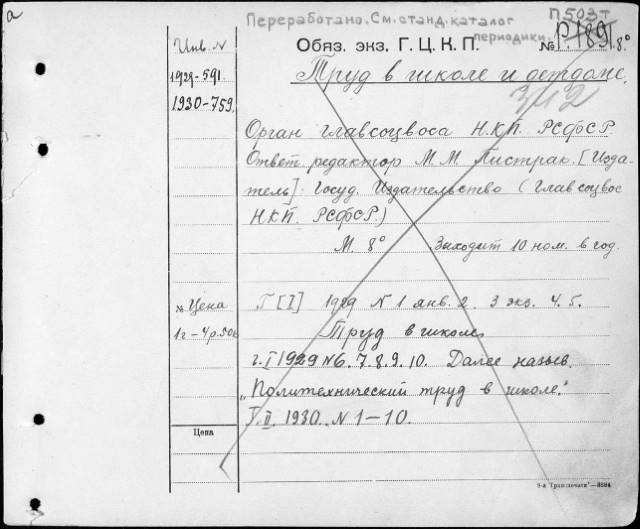 а
Переработано. См. станд. каталог
периодики.
П503т
Инв. N
Обяз. экз. Г. Ц. К. П.
№ Р.189 8°
1929-591.
1930-759.
Труд в школе и детдоме.
342
Орган Главсоцвоса Н.К.П. РСФСР.
Ответ. редактор М. М. Пистрак. [Изда-
тель]. Госуд. Издательство (Главсоцвос
Н.К.П. РСФСР)
М. 8° Выходит 10 ном. в год.
№ Цена
1г-4р.50к
Г [I] 1929 N 1 янв. 2. 3 экз. 4. 5.
Труд в школе
г. I 1929 N6. 7. 8. 9. 10. Далее назыв.
„Политехнический труд в школе."
Г. II. 1930. N 1-10.
Цена
9-я „Гранпечати"—8584